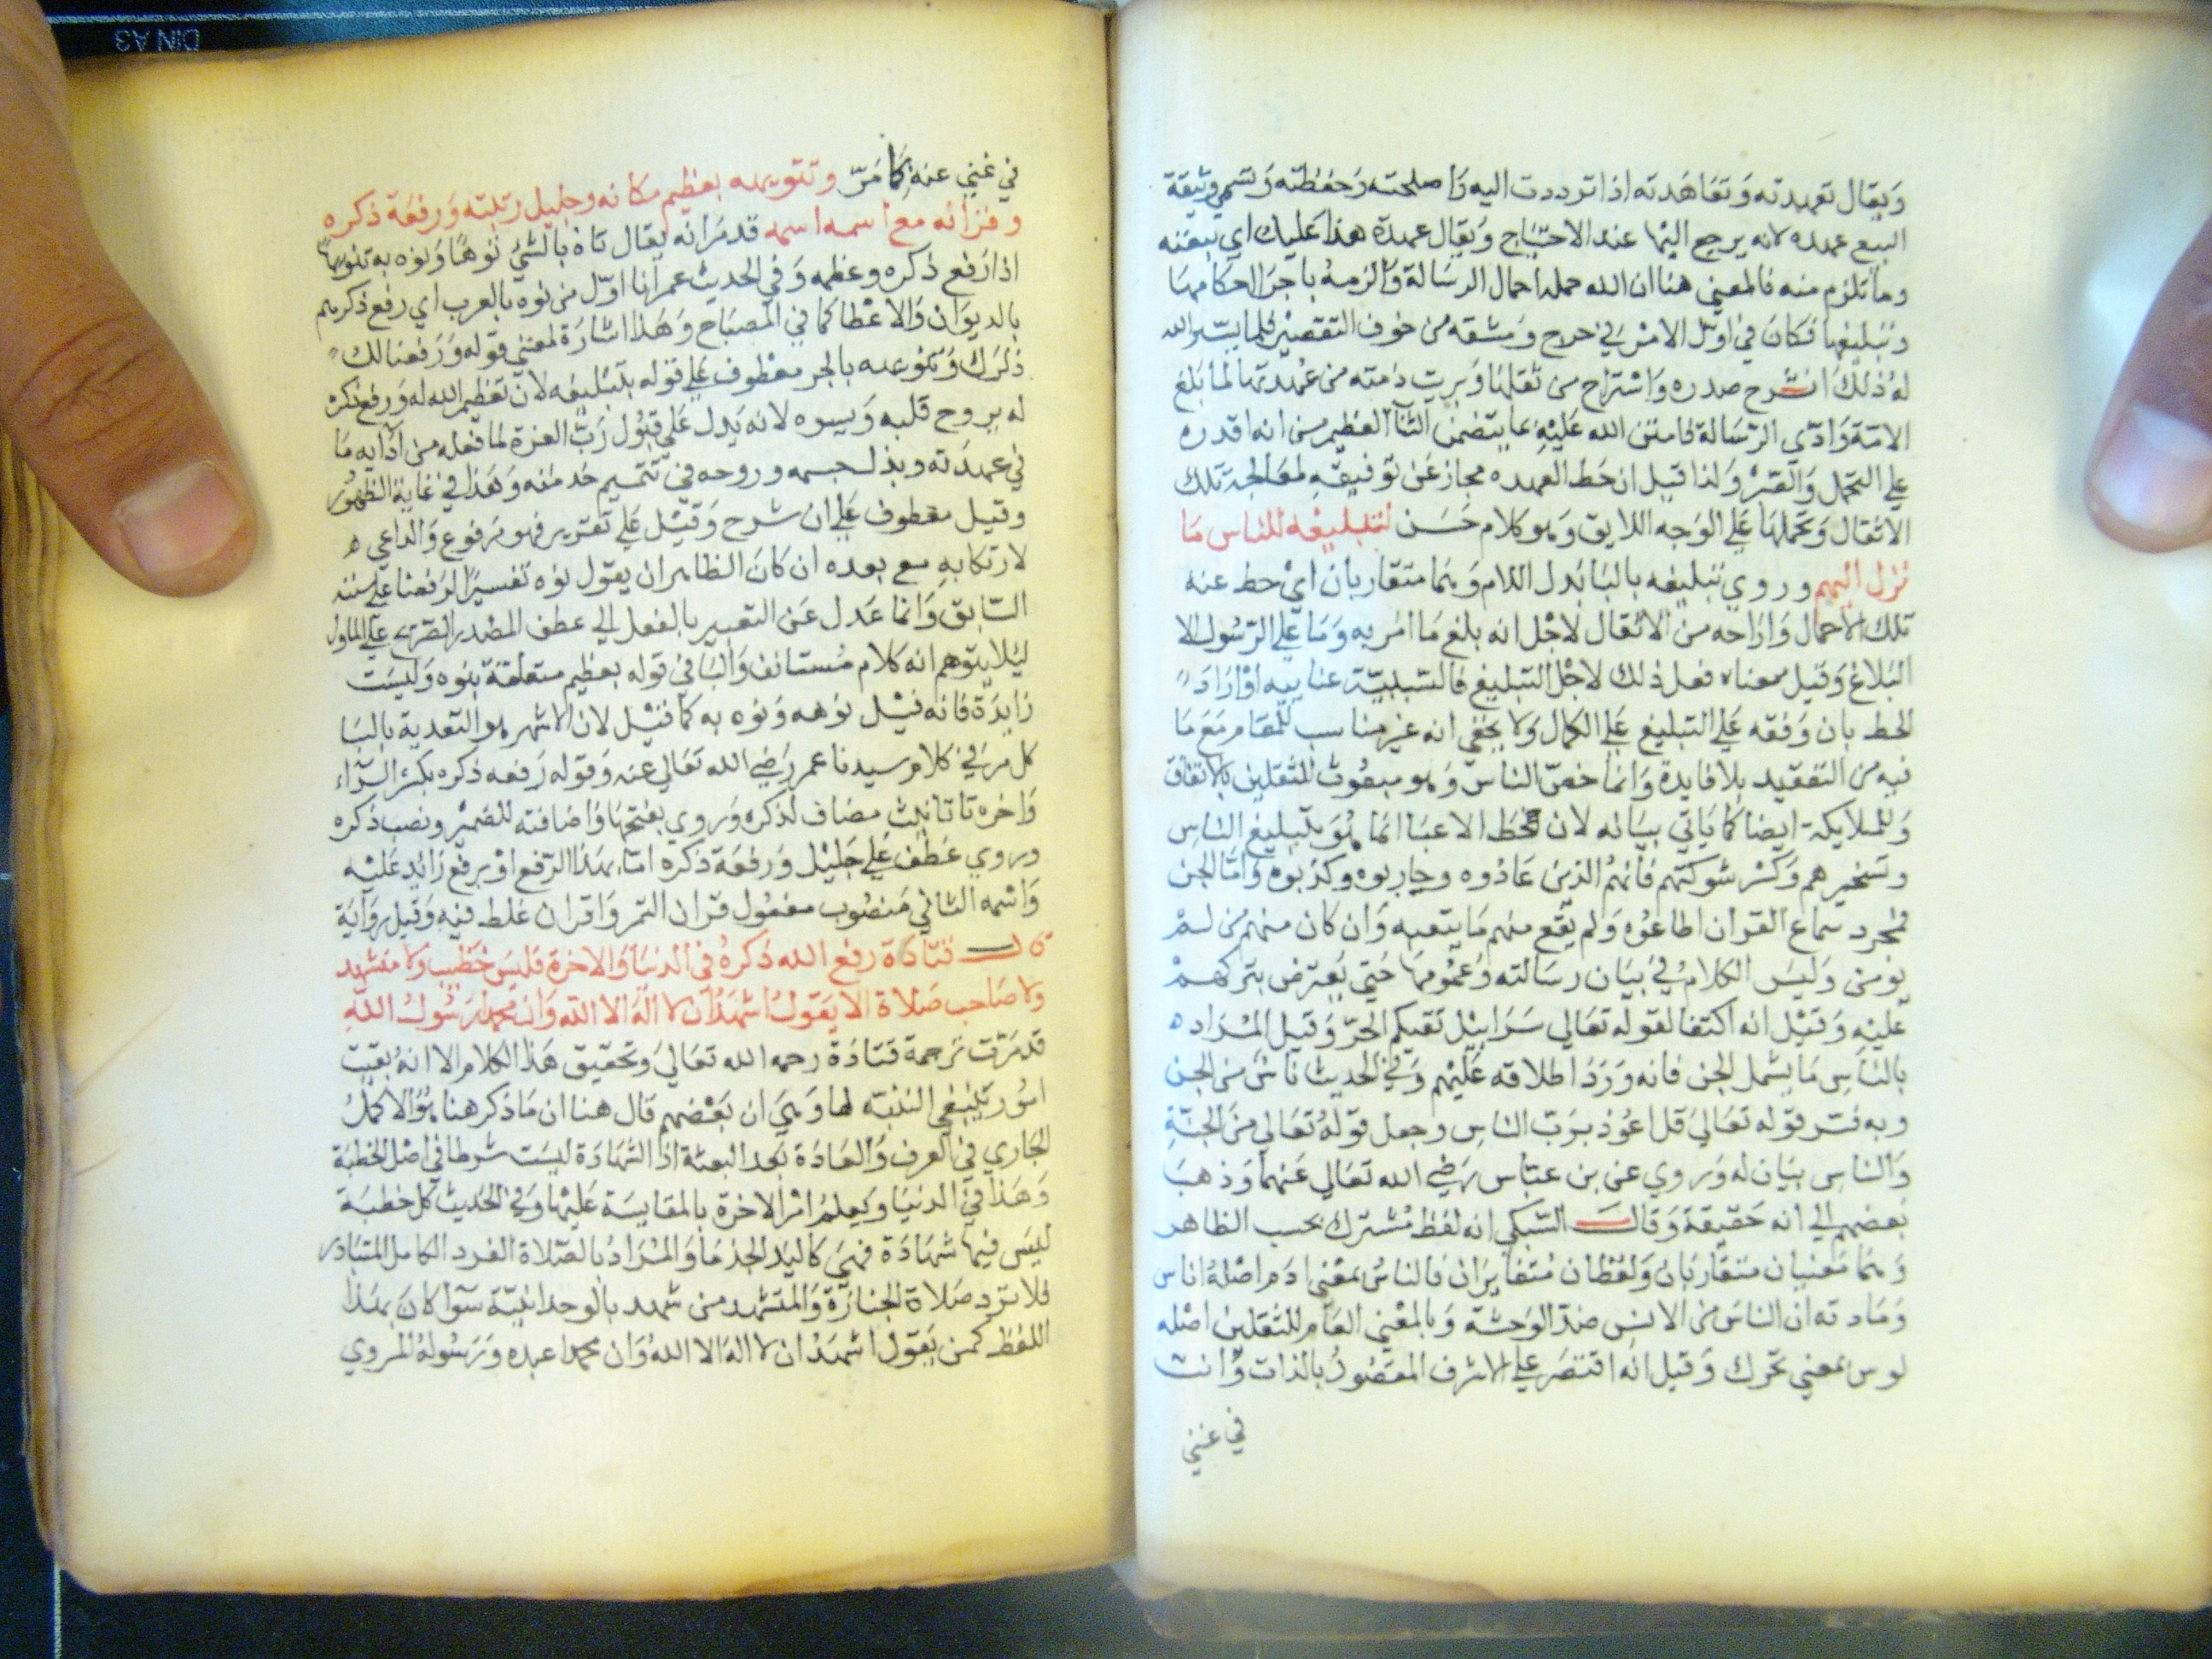 ويقال تعهدته وتعاهدته اذا ترددت اليه واصلحته وحفظته وتسمي وثيقة
البيع عهده لانه يرجع اليها عند الاحتياج ويقال عهدة هذا عليك اي تبعته
وما تلزم منه فالمعني هنا ان الله حمله احمال الرسالة والزمه باجرا احكامها
وتبليغها فكان في اول الامر في حرج ومشقه من خوف التقصير فلما يسر الله
له ذلك انشرح صدره واستراح من ثقلها وبريت ذمته من عهدتها لما بلغ
الامة وادي الرسالة فامتن الله عليه بما يتضمن الثنا العظيم من انه اقدره
علي التحمل والصبر ولذا قيل ان حط العهده مجاز عن توفيقه لمعالجة تلك
الاثقال وتحملها علي الوجه اللايق وهو كلام حسن لتبليغه للناس ما
نزل اليهم وروي بتبليغه بالبا بدل اللام وهما متقاربان اي حط عنه
تلك الاحمال وازاحه من الاثقال لاجل انه بلغ ما امر به وما علي الرسول الا
البلاغ وقيل معناه فعل ذلك لاجل التبليغ فالسببية عناييه او اراد
الحط بان وفقه علي التبليغ علي الكمال ولا يخفي انه غير مناسب للمقام مع ما
فيه من التعقيد بلا فايدة وانما خص الناس وهو مبعوث للثقلين بالاتفاق
وللملايكة ايضا كما ياتي بيانه لان حط الاعبا انما هو بتبليغ الناس
وتسخيرهم وكسر شوكتهم فانهم الذين عادوه وحاربوه وكذبوه واما الجن
فمجرد سماع القران اطاعوه ولم يقع منهم ما يتعبه وان كان منهم من لم
يومن وليس الكلام في بيان رسالته وعمومها حتي يعترض بتركهم
عليه وقيل انه اكتفا لقوله تعالي سرابيل تقيكم الحر وقيل المراد
بالناس ما يشمل الجن فانه ورد اطلاقه عليهم وفي الحديث ناس من الجن
وبه فسر قوله تعالي قل اعوذ برب الناس وجعل قوله تعالي من الجنة
والناس بيان له وروي عن بن عباس رضي الله تعالي عنهما وذهب
بعضهم الي انه حقيقة وقال السبكي انه لفظ مشترك بحسب الظاهر
وهما معنيان متقاربان ولفظان متغايران فالناس بمعني ادم اصله اناس
ومادته ان الناس من الانس ضد الوحشة وبالمعني العام للثقلين اصله
نوس بمعني تحرك وقيل انه اقتصر علي الاشرف المقصود بالذات وانت
في غني
في غني عنه كما مر وتنويهه بعظيم مكانه وجليل رتبته ورفعة ذكره
وقرانه مع اسمه اسمه قد مر انه يقال ناه بالشي نوها ونوه به تنويها
اذا رفع ذكره وعظمه وفي الحديث عمر انا اول من نوه بالعرب اي رفع ذكرهم
بالديوان والاعطا كما في المصباح وهذا اشارة لمعني قوله ورفعنا لك
ذكرك وتنويهه بالجر معطوف علي قوله بتبليغه لان تعظيم الله له ورفع ذكره
له يروح قلبه ويسره لانه يدل علي قبول رب العزة لما فعله من ادايه ما
في عهدته وبذل جسمه وروحه في تتميم خدمته وهذا في غاية الظهور
وقيل معطوف علي ان شرح وقيل علي تقرير فهو مرفوع والداعي
لارتكابه مع بعده ان كان الظاهر ان يقول نوه تفسيرا لرفعنا علي سننه
السابق وانما عدل عن التعبير بالفعل الي عطف المصدر الصريح علي الماول
ليلا يتوهم انه كلام مستانف والبا في قوله بعظيم متعلقة بنوه وليست
زايدة فانه قيل نوهه ونوه به كما قيل لان الاشهر هو التعدية بالبا
كما مر في كلام سيدنا عمر رضي الله تعالي عنه وقوله رفعه ذكره بكسر الراء
واخره تا تانيث مضاف لذكره وروي بفتحها واضافته للضمير ونصب ذكره
وروي عطف علي جليل ورفعة ذكره اما بهذا الرفع او برفع زايد عليه
واسمه الثاني منصوب مفعول قران التمر واقران غلط فيه وقيل رواية
قال قتادة رفع الله ذكره في الدنيا والاخرة فليس خطيب ولا متشهد
ولا صاحب صلاة الا يقول اشهد ان لا اله الا الله وان محمدا رسول الله
قد مرت ترجمة قتادة رحمه الله تعالي وتحقيق هذا الكلام الا انه بقيت
امور ينبغي التنبه لها وهي ان بعضهم قال هنا ان ما ذكر هنا هو الاكمل
الجاري في العرف والعادة بعد البعثة اذ الشهادة ليست شرطا في اصل الخطبة
وهذا في الدنيا ويعلم امر الاخرة بالمقايسة عليها وفي الحديث كل خطبة
ليس فيها شهادة فهي كاليد الجذما والمراد بالصلاة الفرد الكامل المتبادر
فلا ترد صلاة الجنازة والمتشهد من شهد بالوحدانية سوا كان بهذا
اللفظ كمن يقول اشهد ان لا اله الا الله وان محمدا عبده ورسوله المروي